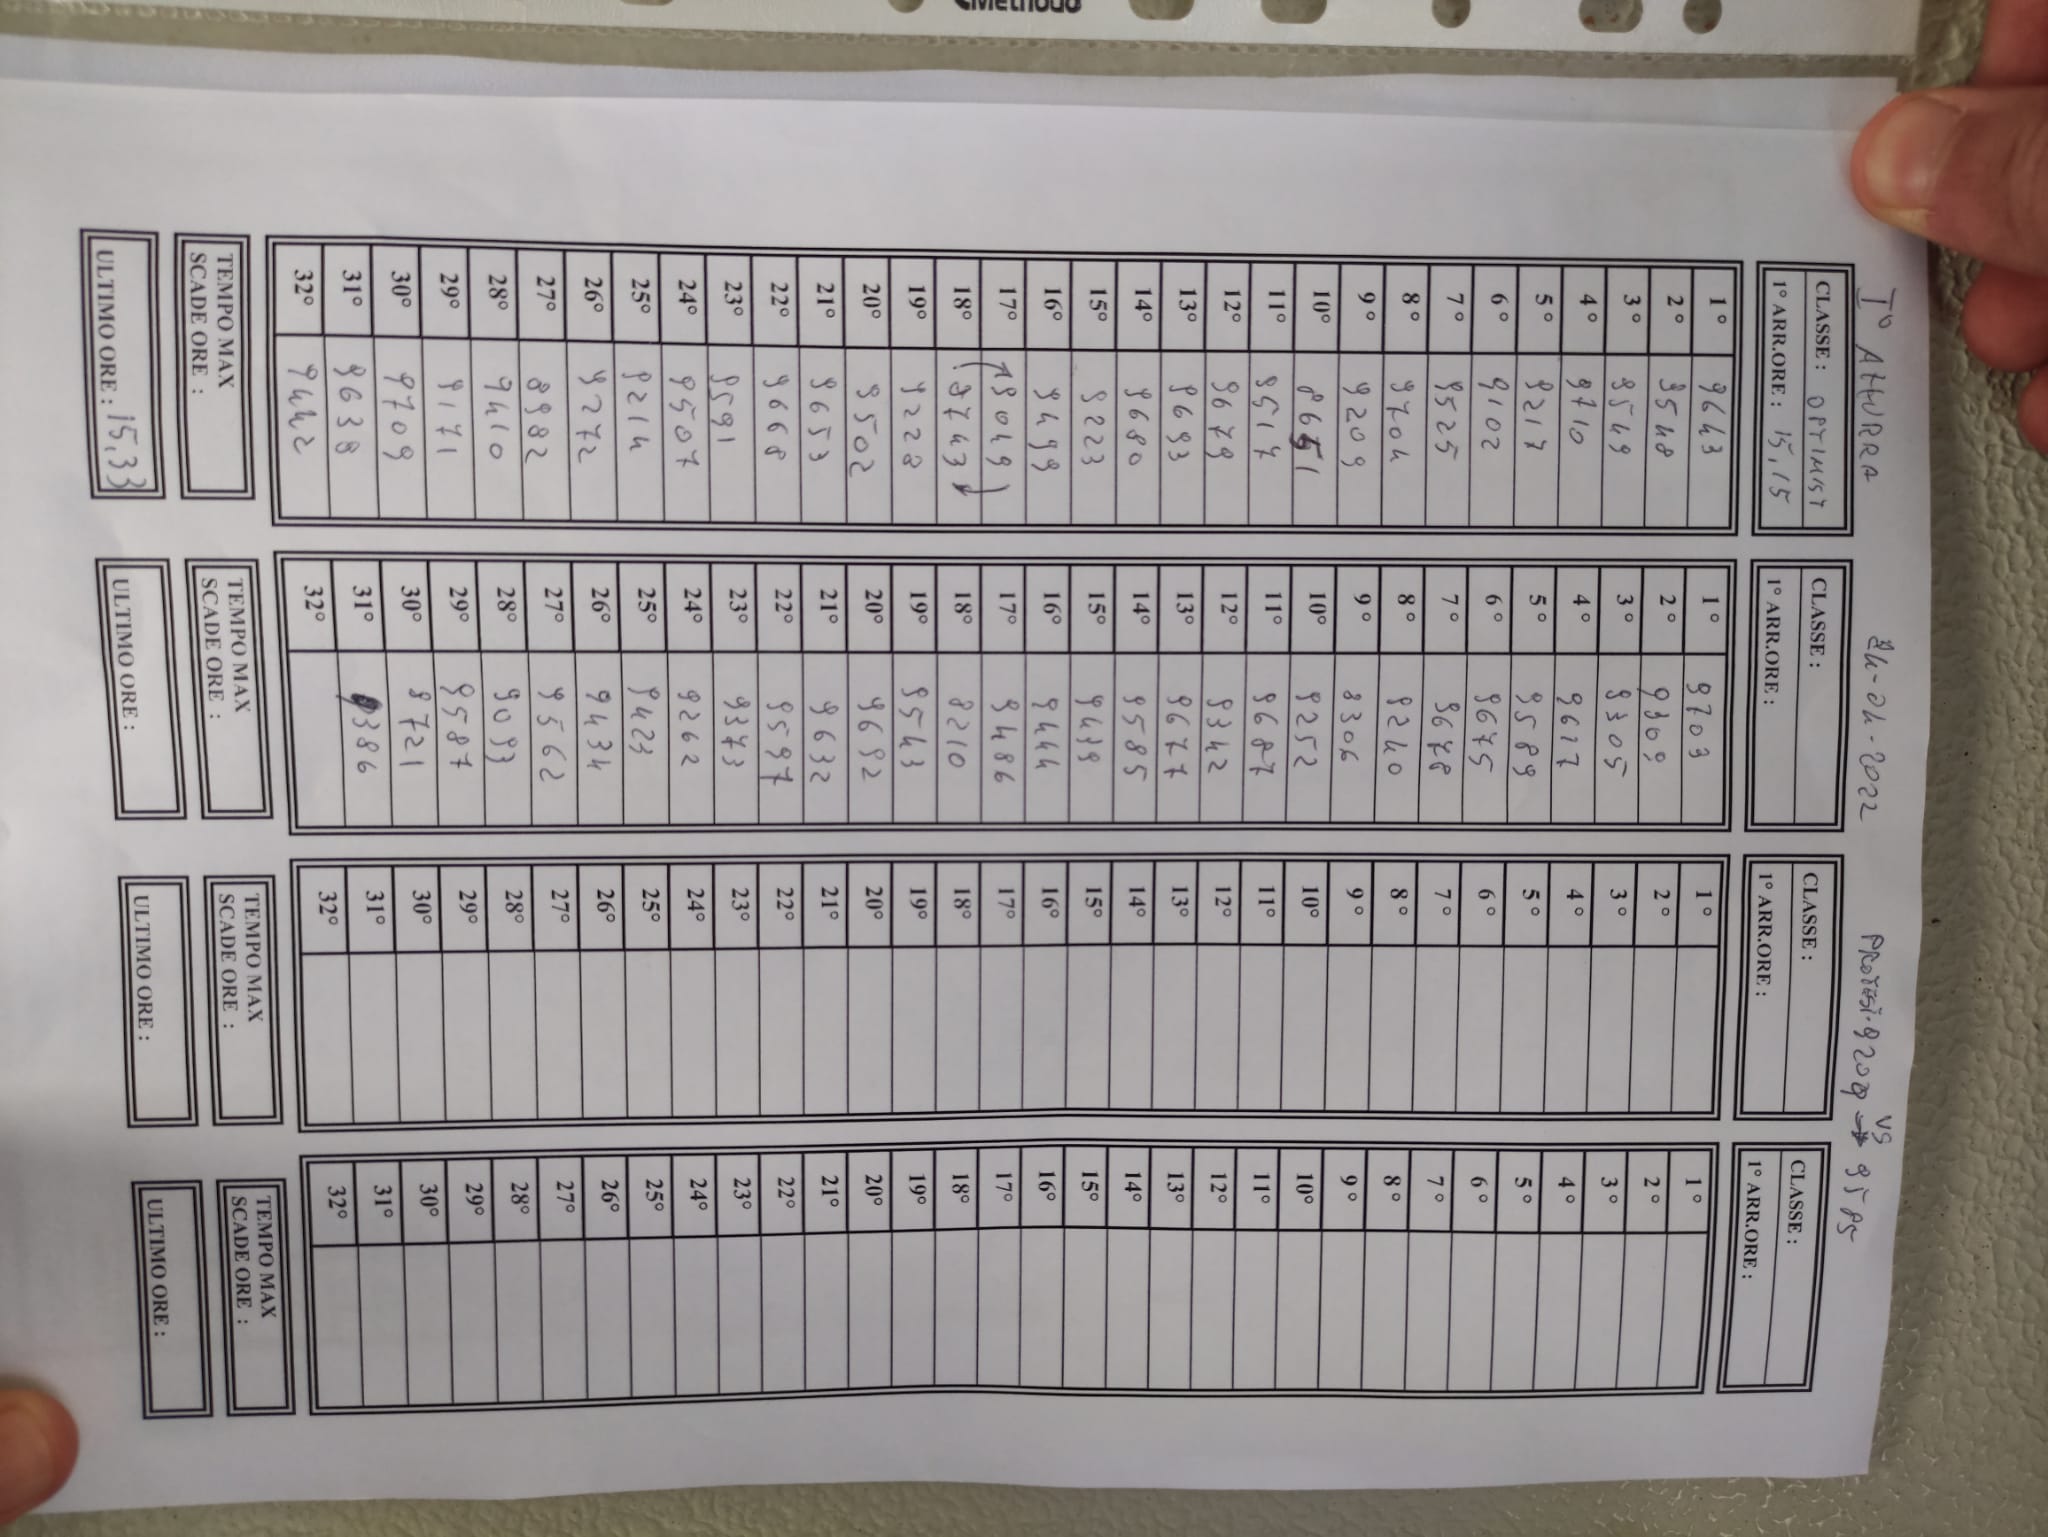 I° AZZURRA
24-04-2022
PROTESI. 9209 → VS 9585
CLASSE : OPTIMIST
1° ARR.ORE : 15,15
1° 9643
2° 9548
3° 9549
4° 9710
5° 9217
6° 9102
7° 9525
8° 9704
9° 9209
10° 8651
11° 9517
12° 9679
13° 9693
14° 9680
15° 9223
16° 9499
17° 9049
18° 8743
19° 9228
20° 9502
21° 9653
22° 9668
23° 9591
24° 9507
25° 9214
26° 9272
27° 8982
28° 9410
29° 9171
30° 9709
31° 9638
32° 9442
TEMPO MAX
SCADE ORE :
ULTIMO ORE : 15,33
CLASSE :
1° ARR.ORE :
1° 9703
2° 9309
3° 9305
4° 9617
5° 9589
6° 9675
7° 9678
8° 9240
9° 8306
10° 9252
11° 9687
12° 9342
13° 9677
14° 9585
15° 9439
16° 9444
17° 9486
18° 8210
19° 9543
20° 9692
21° 9632
22° 9597
23° 9373
24° 9262
25° 9423
26° 9434
27° 9562
28° 9093
29° 9587
30° 8721
31° 9386
32°
TEMPO MAX
SCADE ORE :
ULTIMO ORE :
CLASSE :
1° ARR.ORE :
1°
2°
3°
4°
5°
6°
7°
8°
9°
10°
11°
12°
13°
14°
15°
16°
17°
18°
19°
20°
21°
22°
23°
24°
25°
26°
27°
28°
29°
30°
31°
32°
TEMPO MAX
SCADE ORE :
ULTIMO ORE :
CLASSE :
1° ARR.ORE :
1°
2°
3°
4°
5°
6°
7°
8°
9°
10°
11°
12°
13°
14°
15°
16°
17°
18°
19°
20°
21°
22°
23°
24°
25°
26°
27°
28°
29°
30°
31°
32°
TEMPO MAX
SCADE ORE :
ULTIMO ORE :